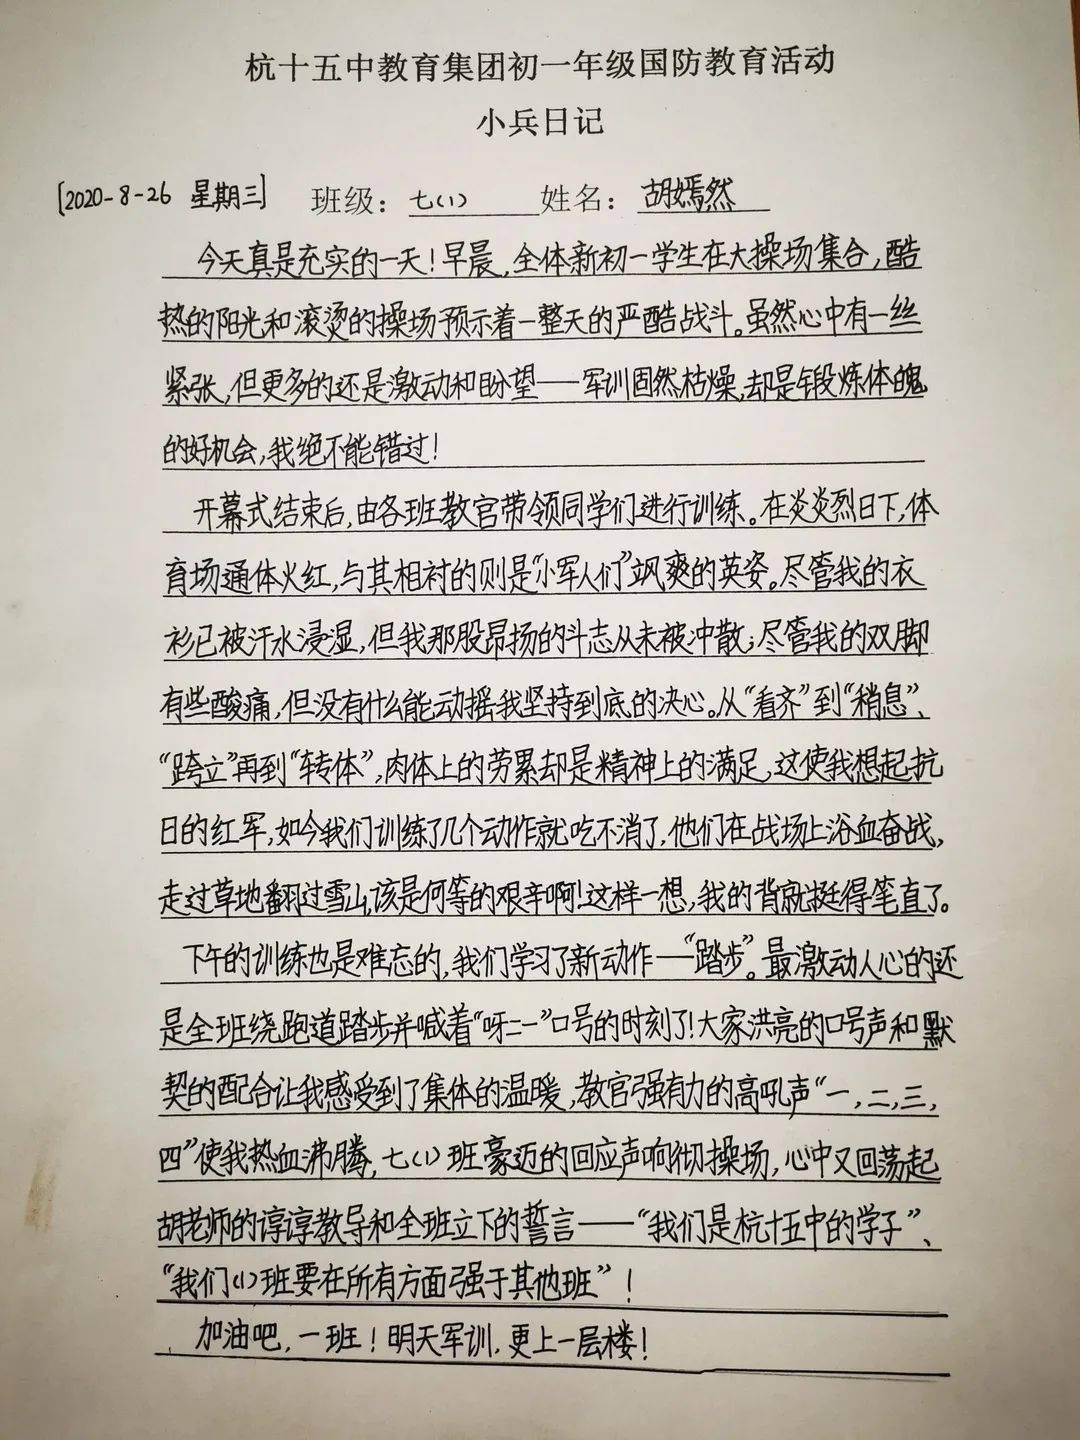 杭十五中教育集团初一年级国防教育活动
小兵日记
[2020-8-26 星期三] 班级：七(1) 姓名：胡嫣然
今天真是充实的一天！早晨，全体新初一学生在大操场集合，酷
热的阳光和滚烫的操场预示着一整天的严酷战斗。虽然心中有一丝
紧张，但更多的还是激动和盼望——军训固然枯燥，却是锻炼体魄
的好机会，我绝不能错过！
开幕式结束后，由各班教官带领同学们进行训练。在炎炎烈日下，体
育场通体火红，与其相衬的则是“小军人们”飒爽的英姿。尽管我的衣
衫已被汗水浸湿，但我那股昂扬的斗志从未被冲散；尽管我的双脚
有些酸痛，但没有什么能动摇我坚持到底的决心。从“看齐”到“稍息”、
“跨立”再到“转体”，肉体上的劳累却是精神上的满足，这使我想起抗
日的红军，如今我们训练了几个动作就吃不消了，他们在战场上浴血奋战，
走过草地翻过雪山，该是何等的艰辛啊！这样一想，我的背就挺得笔直了。
下午的训练也是难忘的，我们学习了新动作——“踏步”。最激动人心的还
是全班绕跑道踏步并喊着“呀二一”口号的时刻了！大家洪亮的口号声和默
契的配合让我感受到了集体的温暖，教官强有力的高吼声“一，二，三，
四”使我热血沸腾，七(1)班豪迈的回应声响彻操场，心中又回荡起
胡老师的谆谆教导和全班立下的誓言——“我们是杭十五中的学子”、
“我们(1)班要在所有方面强于其他班”！
加油吧，一班！明天军训，更上一层楼！